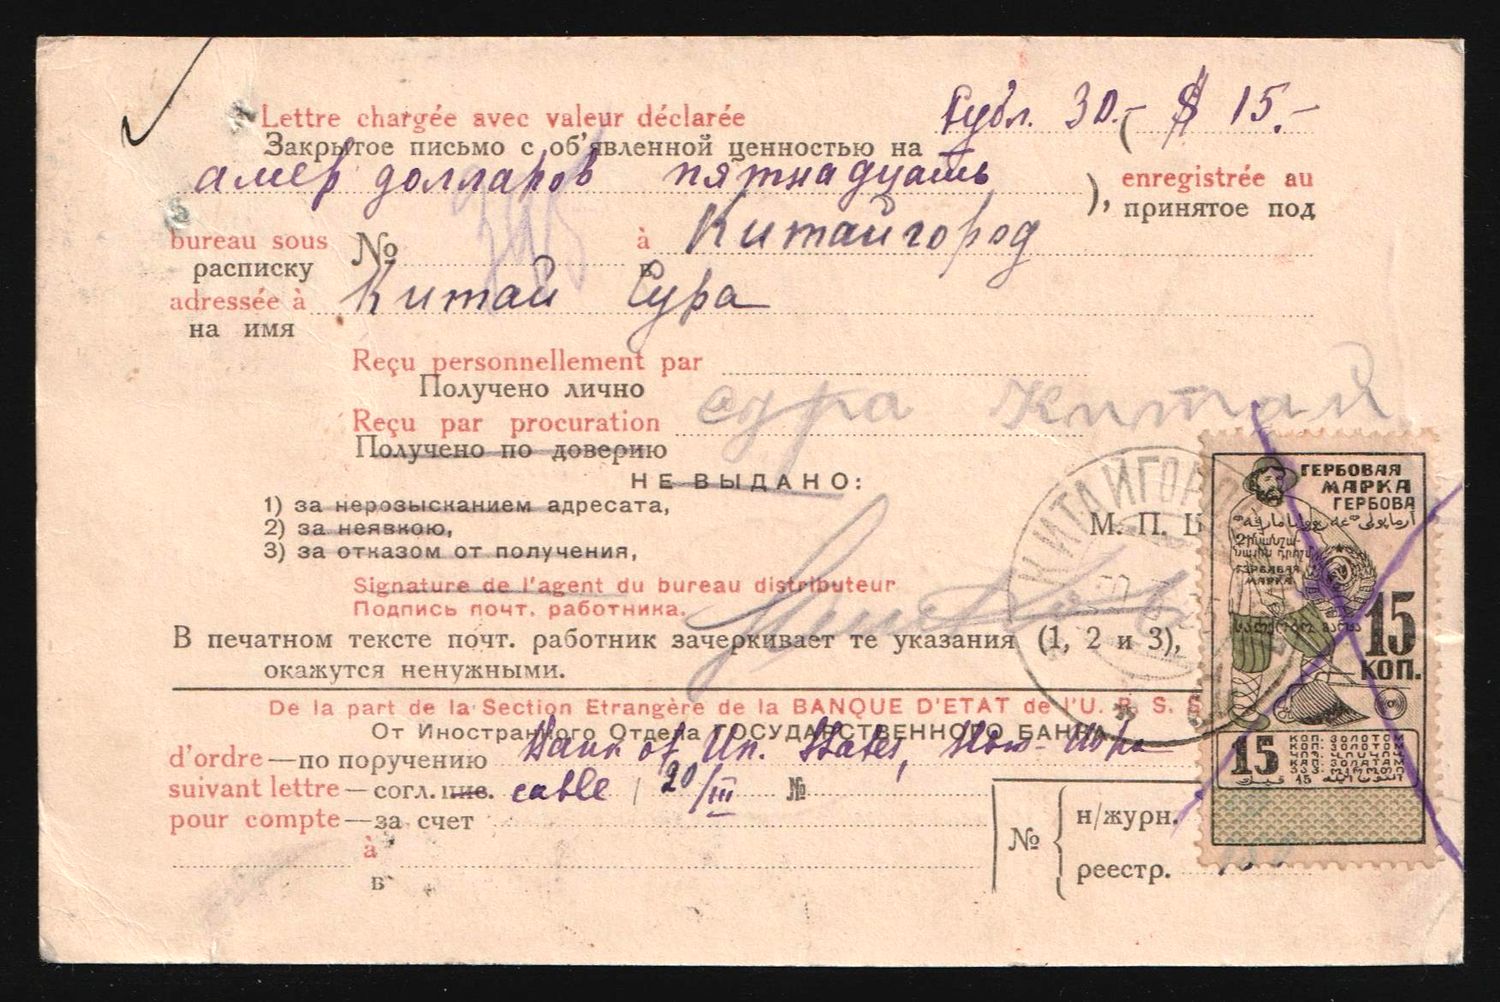 Lettre chargée avec valeur déclarée
Закрытое письмо с об'явленной ценностью на рубл. 30.- ($ 15.-
амер долларов пятнадцать ), enregistrée au
принятое под
bureau sous № à Китайгород
расписку в
adressée à Китай Сура
на имя
Reçu personnellement par
Получено лично
Reçu par procuration сура Китай
Получено по доверию
НЕ ВЫДАНО:
1) за нерозысканием адресата,
2) за неявкою,
3) за отказом от получения,
М. П.
Signature de l'agent du bureau distributeur
Подпись почт. работника.
В печатном тексте почт. работник зачеркивает те указания (1, 2 и 3),
окажутся ненужными.
De la part de la Section Etrangère de la BANQUE D'ETAT de l'U. R. S. S.
От Иностранного Отдела ГОСУДАРСТВЕННОГО БАНКА
d'ordre — по поручению Bank of Un. States, New-Иорк
suivant lettre — согл. пис. cable 20/III №
pour compte — за счет
à
в
№ { н/журн.
реестр.
КИТАЙГОРОД
ГЕРБОВАЯ
МАРКА
ГЕРБОВА
15
КОП.
15